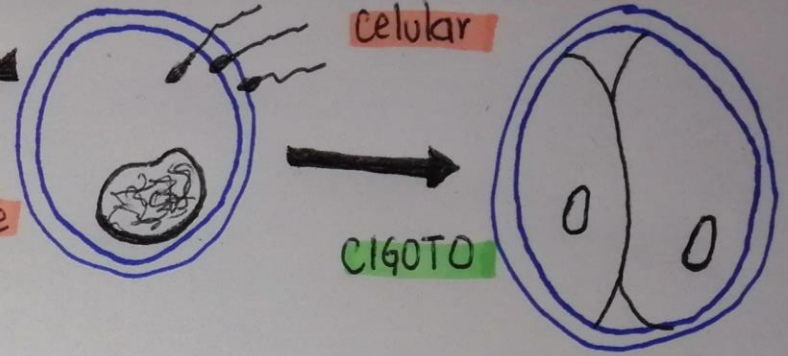 celular
e
CIGOTO